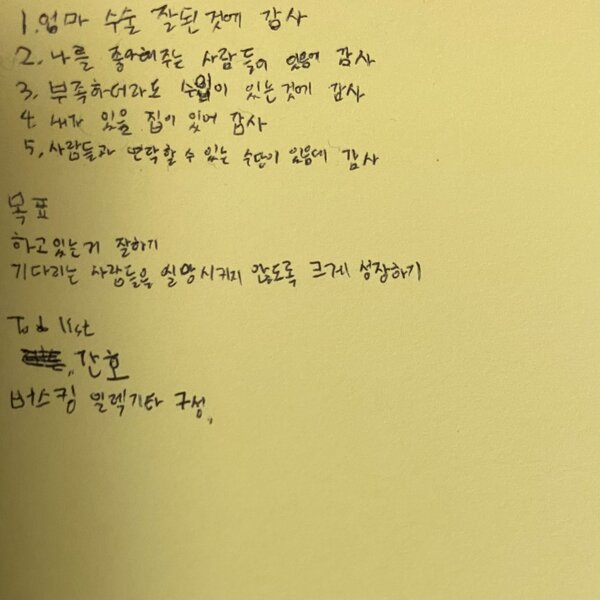 1. 엄마 수술 잘된 것에 감사
2. 나를 좋아해주는 사람들이 있음에 감사
3. 부족하더라도 수입이 있는것에 감사
4. 내가 있을 집이 있어 감사
5. 사람들과 연락할 수 있는 수단이 있음에 감사
목표
하고있는거 잘하기
기다리는 사람들을 실망시키지 않도록 크게 성장하기
To do list
간호
버스킹 일렉기타 구성